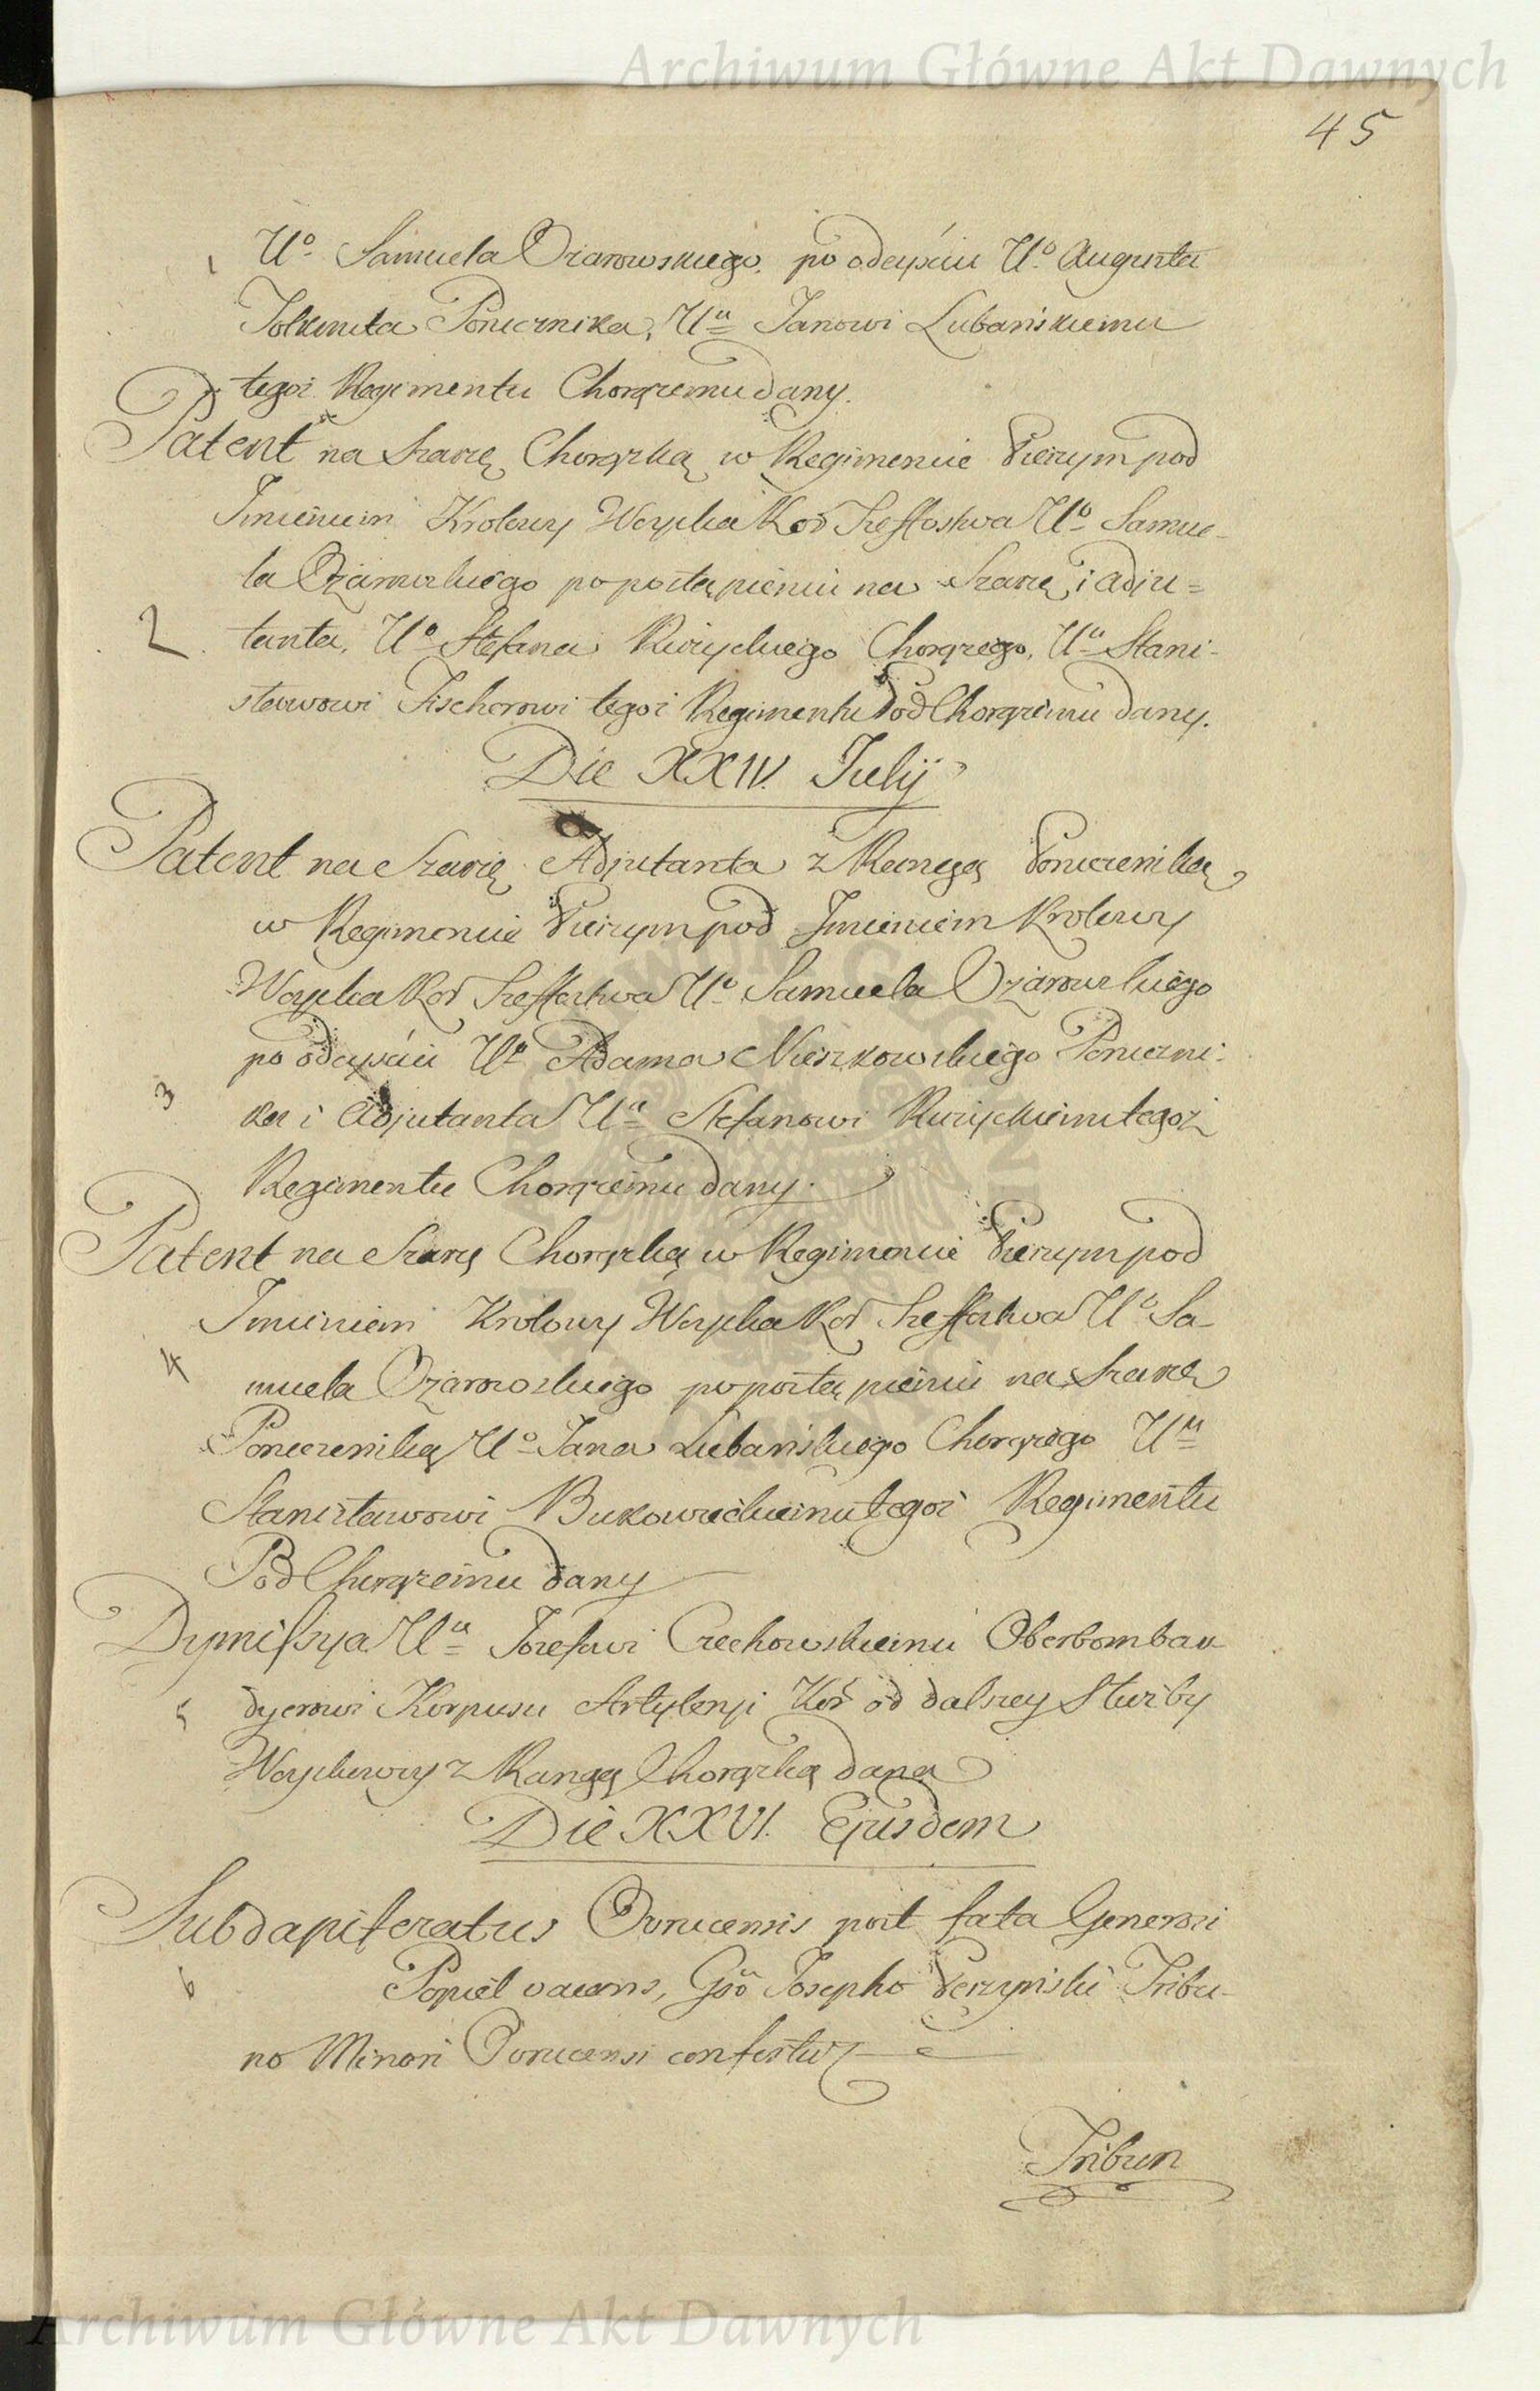 Archiwum Główne Akt Dawnych
45
1 Uo. Samuela Ożarowskiego, po odeyściu Uo. Augusta
Porucznika, Uu Janowi Lubańskiemu
tegoż Regimentu Chorążemu dany.
Patent na Szarżę Chorążką w Regimencie Pieszym pod
Imieniem Krolowy Woyska Kor Szeffostwa Uo Samue-
la Ożarowskiego po postąpieniu na Szarżę i adju=
2 tanta, Uo Stefana Kurzyckiego Chorążego, Uu Stani-
sławowi Fischerowi tegoż Regimentu PodChorążemu dany.
Die XXIV. Julij
Patent na Szarżę Adjutanta z Rangą Porucznika
w Regimencie Pieszym pod Imieniem Krolowy
Woyska Kor Szeffostwa Uo Samuela Ożarowskiego
po odeyściu Uo Adama Nieszkowskiego Poruczni-
3 ka i Adjutanta Uu Stefanowi Kurzyckiemu tegoż
Regimentu Chorążemu dany.
Patent na Szarżę Chorążką w Regimencie Pieszym pod
Imieniem Krolowy Woyska Kor Szeffostwa Uo Sa-
4 muela Ożarowskiego po postąpieniu na Szarżę
Porucznika Uo Jana Lubańskiego Chorążego Uu
Stanisławowi Bukowieckiemu tegoż Regimentu
PodChorążemu dany
Dymissya Uu Jozefowi Czechowskiemu Oberbombar
5 dyerowi Korpusu Artyleryi Kor od dalszey Służby
Woyskowey z Rangą Chorążką dana
Die XXVI. Ejusdem
Subdapiferatus Owrucensis post fata Generosi
6 Popiel vacans, Gso Josepho Perzyński Tribu-
no Minori Owrucensi confertur
Tribun
Archiwum Główne Akt Dawnych